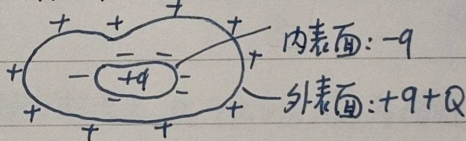 + + + +
- - -
内表面:-q
+ - +q - +
- -
外表面:+q+Q
+ +
+ +